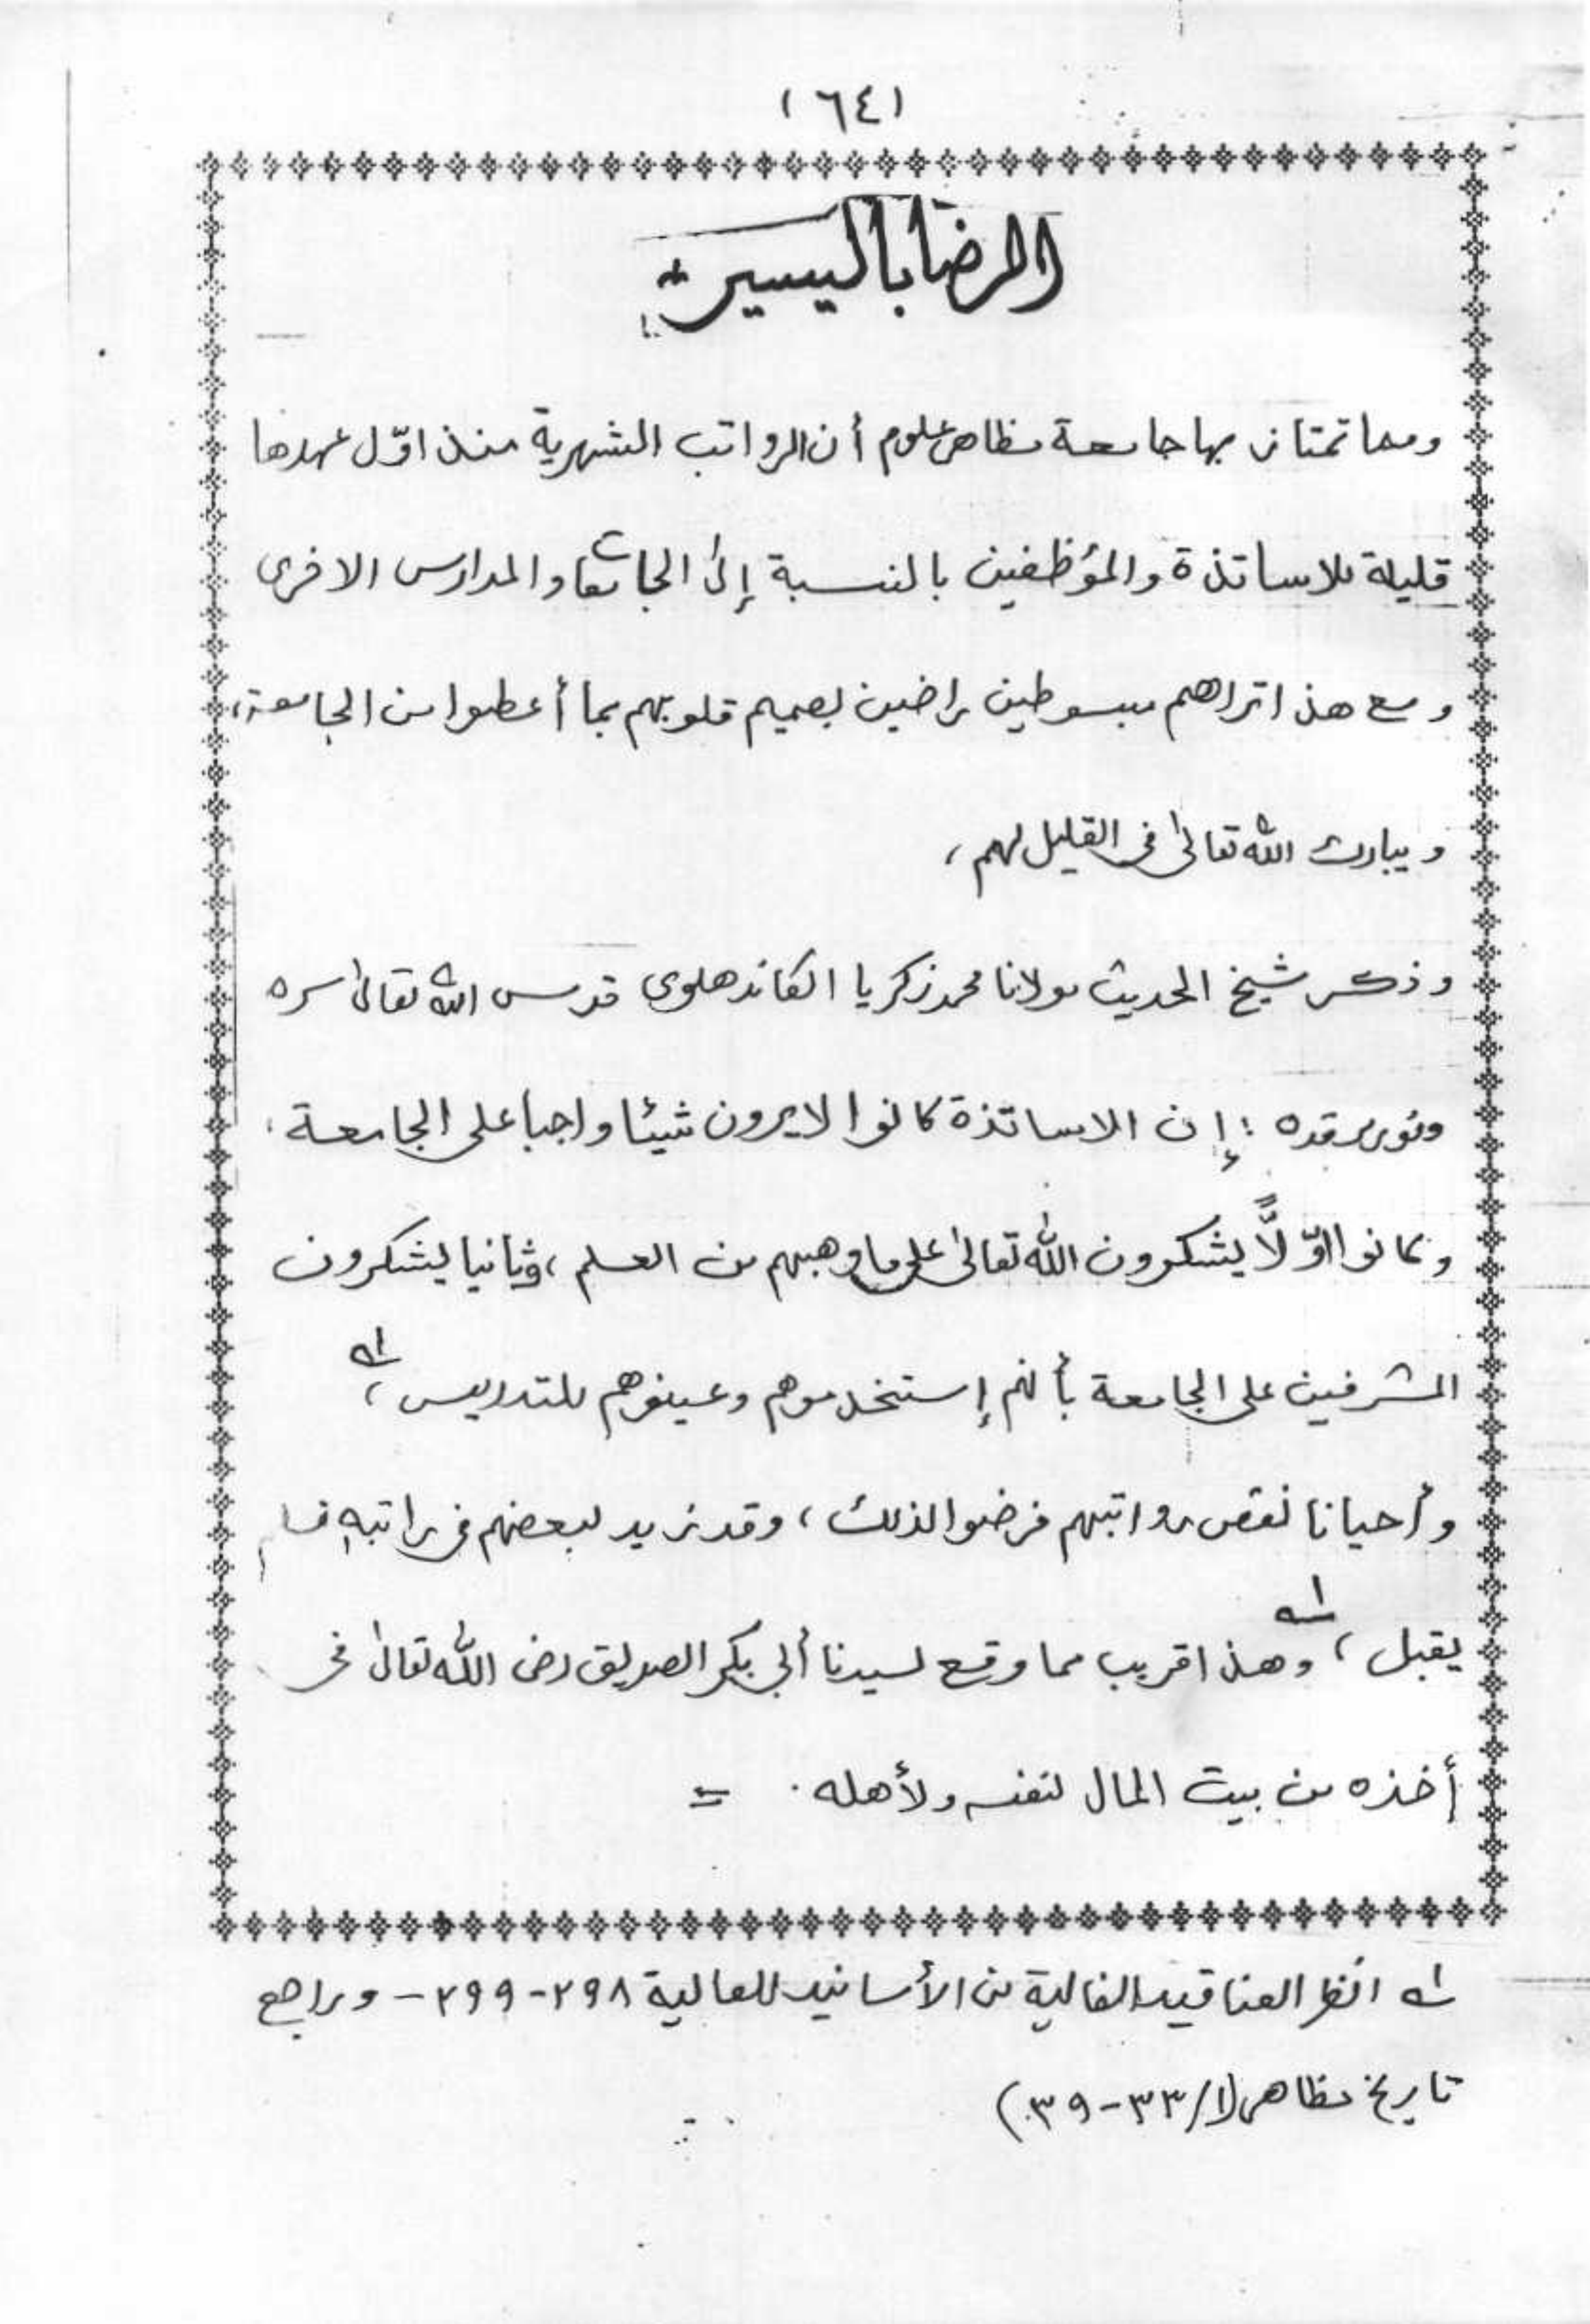 (٦٤)
الرضا باليسير
ومما تمتاز بها جامعة مظاهر علوم أن الرواتب الشهرية منذ اوّل عهدها
قليلة للاساتذة والمؤظفين بالنسبة إلى الجامعات والمدارس الاخرى
و مع هذا تراهم مبسوطين راضين بصميم قلوبهم بما أعطوا من الجامعة،
و يبارك الله تعالىٰ فى القليل لهم،
وذكر شيخ الحديث مولانا محمد زكريا الكاندهلوى قدس الله تعالىٰ سره
ونور مرقده : إن الاساتذة كانوا لا يرون شيئا واجبا على الجامعة،
وكانوا اوّلاً يشكرون الله تعالىٰ على ما وهبهم من العلم، وثانيا يشكرون
المشرفين على الجامعة بأنهم إستخدموهم وعينوهم للتدريس، ١ــه
وأحيانا نقص رواتبهم فرضوا لذلك، وقد نزيد لبعضهم فى راتبه فلم
يقبل، ١ــه وهذا قريب مما وقع لسيدنا أبى بكر الصديق رضى الله تعالىٰ فى
أخذه من بيت المال لنفسه ولأهله . =
١ــه انظر العناقيد الغالية من الأسانيد العالية ٢٩٨-٢٩٩- وراجع
تاريخ مظاهر (١/٣٣-٣٩)